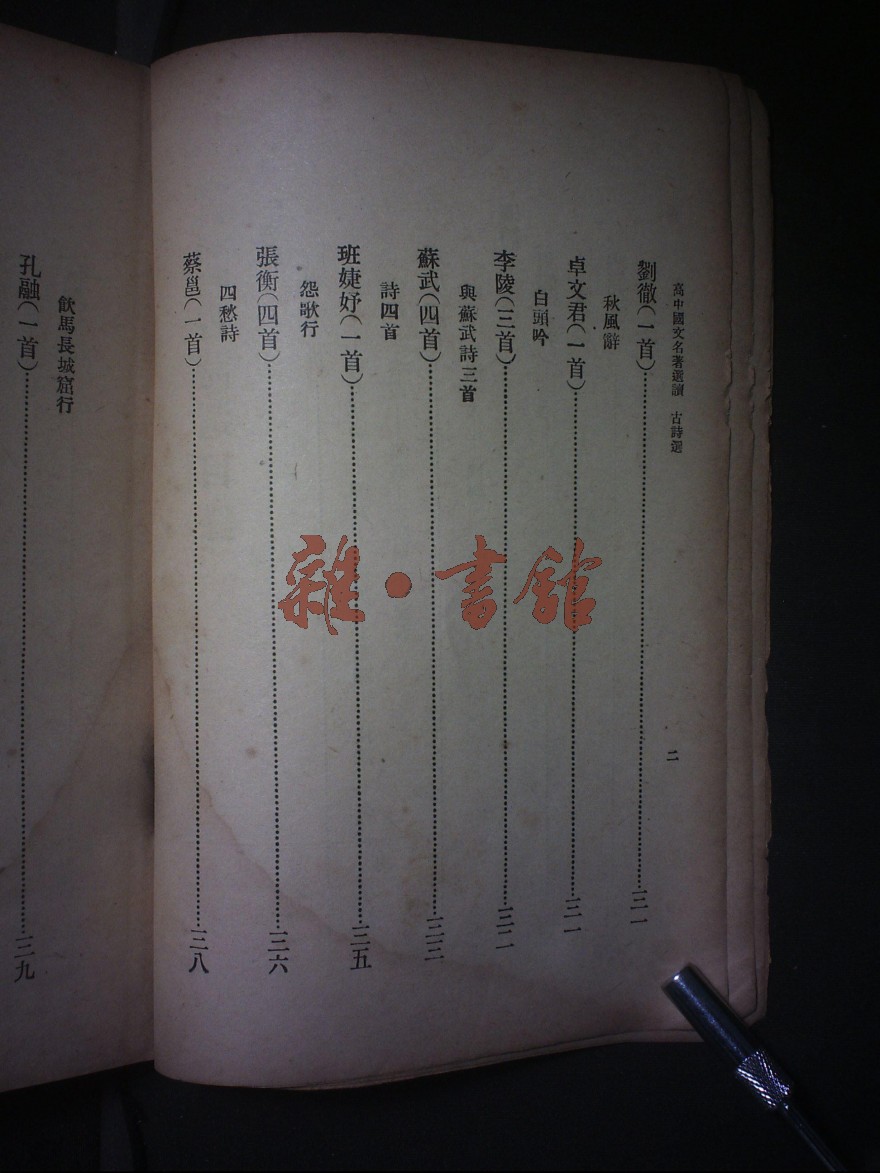 高中國文名著選讀　古詩選
二
劉徹(一首)……三一
秋風辭
卓文君(一首)……三一
白頭吟
李陵(三首)……三二
與蘇武詩三首
蘇武(四首)……三三
詩四首
班婕妤(一首)……三五
怨歌行
張衡(四首)……三六
四愁詩
蔡邕(一首)……三八
飲馬長城窟行
孔融(一首)……三九
雜·書館